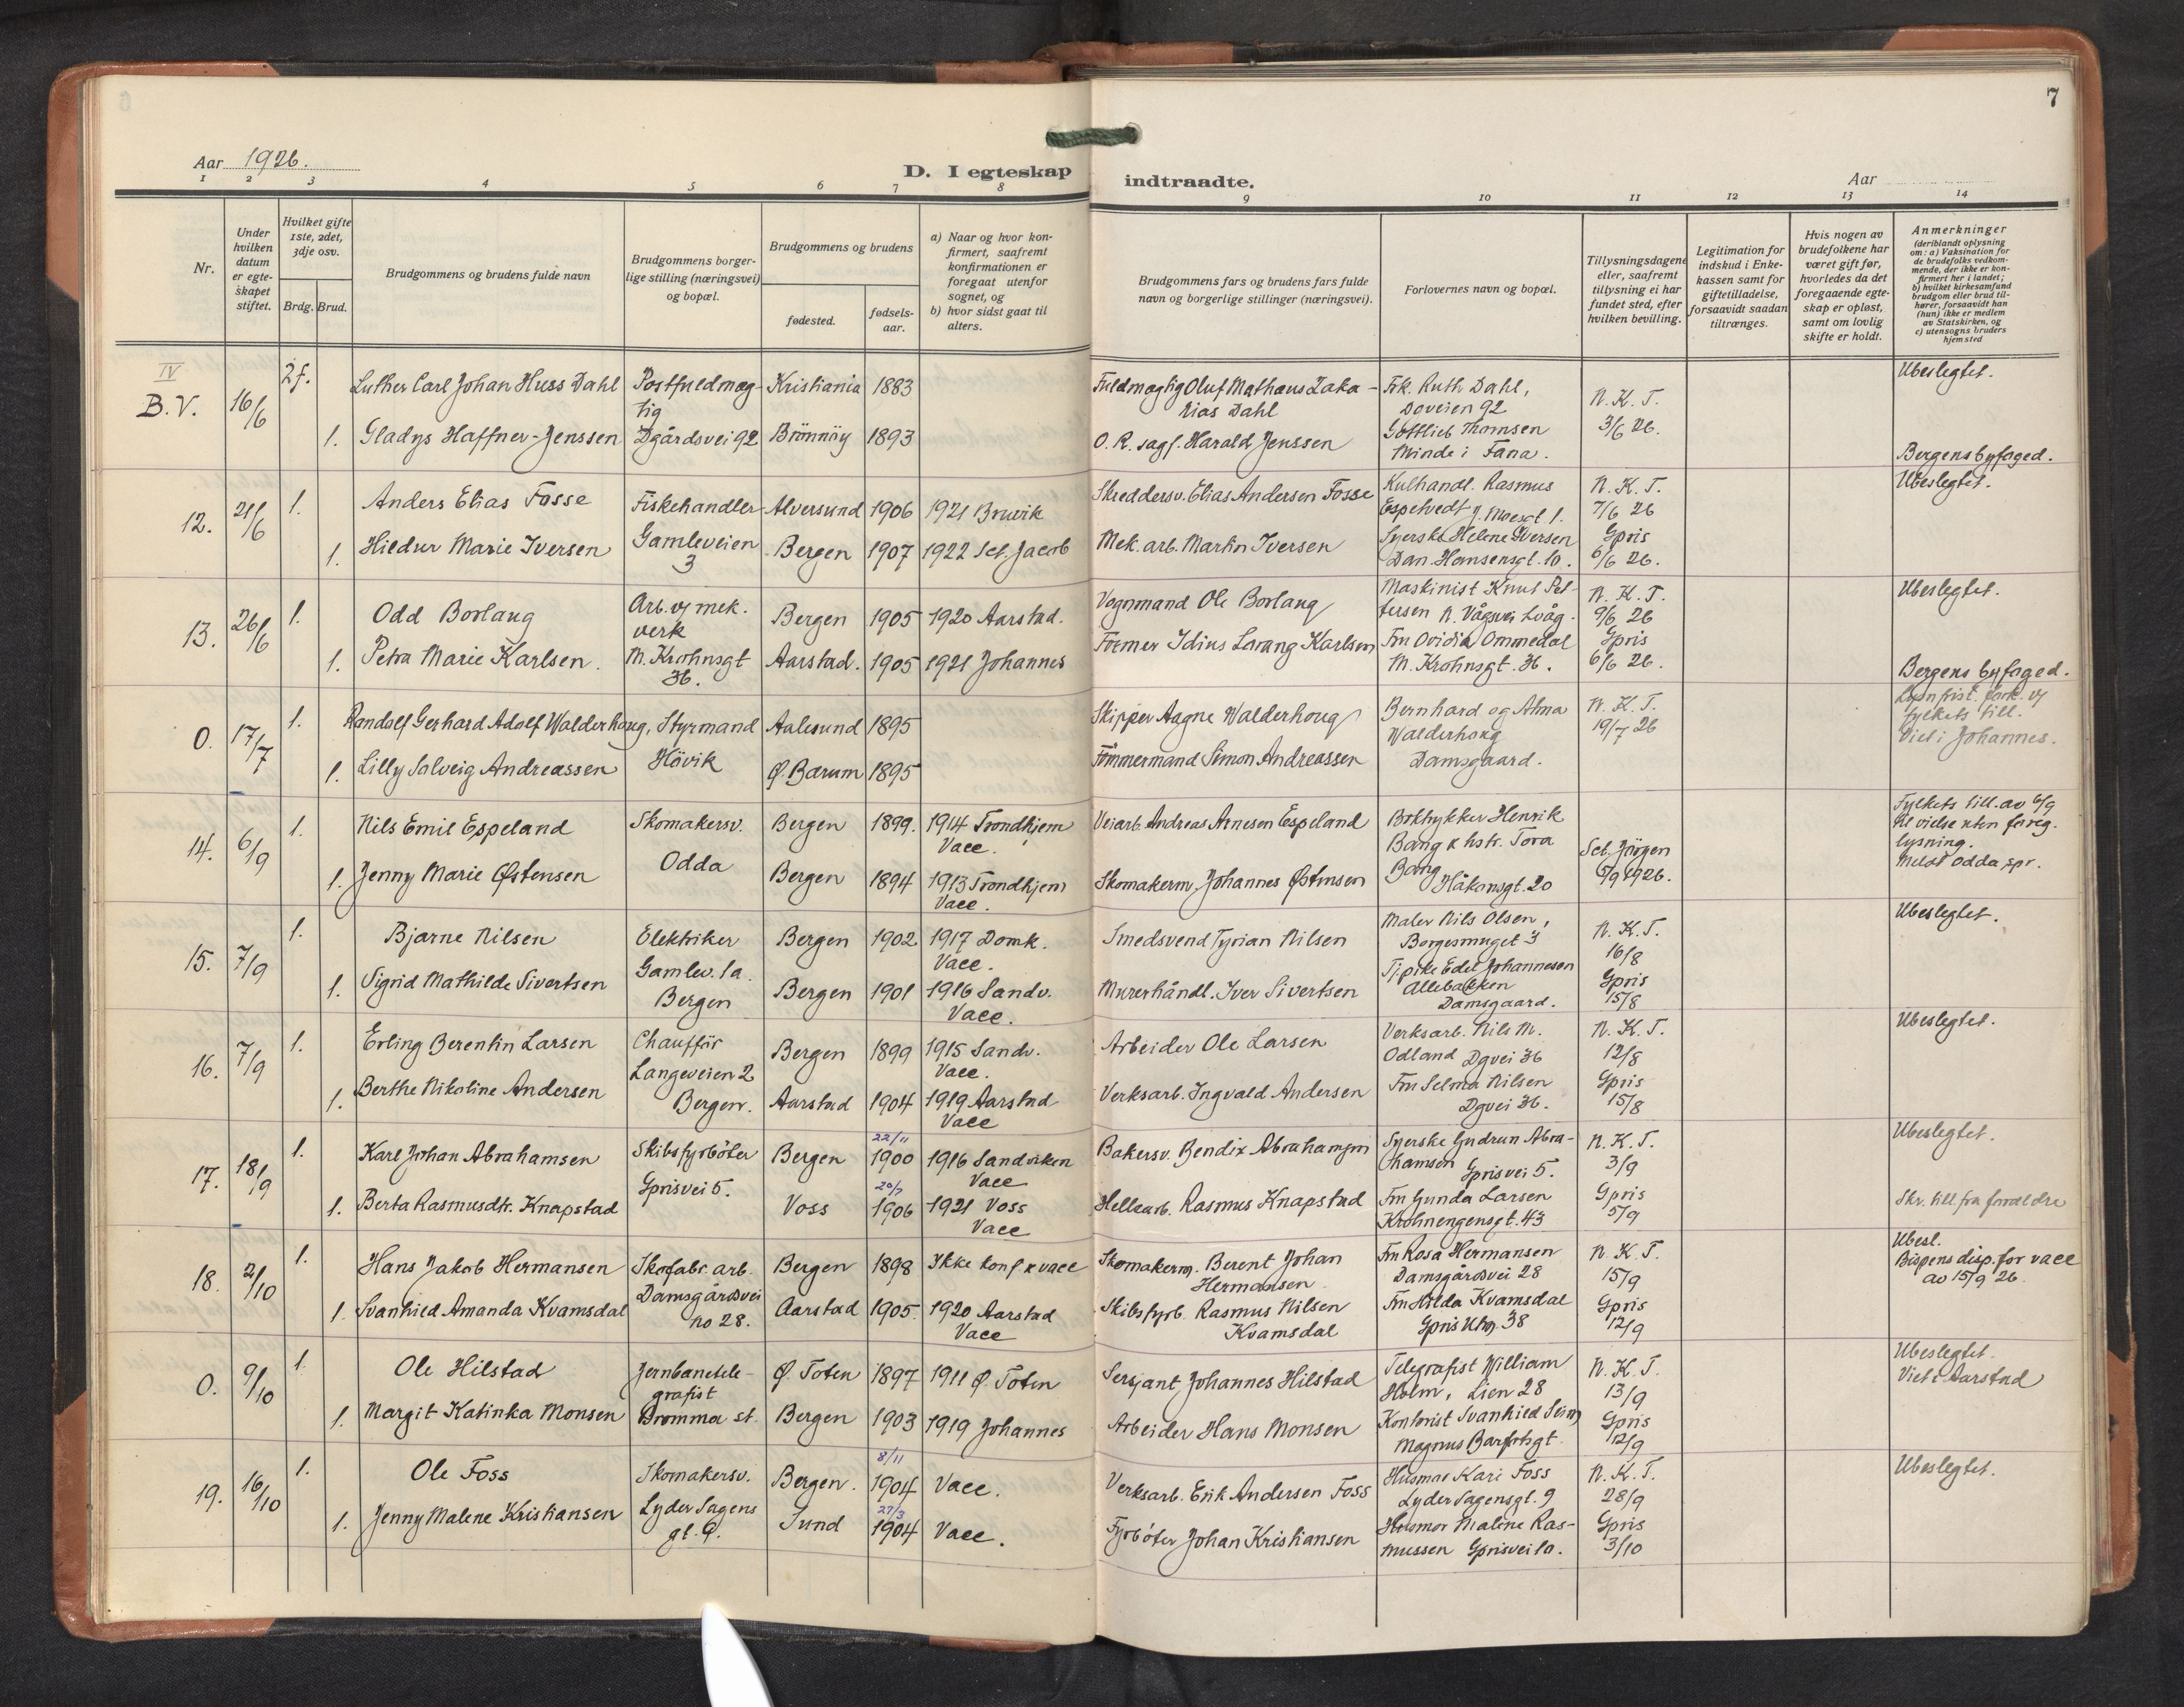 7
Aar 1926.
D. I egteskap indtraadte.
Aar
1 2 3 4 5 6 7 8 9 10 11 12 13 14
Nr.
Under hvilken datum er egte-skapet stiftet.
Hvilket gifte 1ste, 2det, 3dje osv.
Brdg. Brud.
Brudgommens og brudens fulde navn
Brudgommens borger-lige stilling (næringsvei) og bopæl.
Brudgommens og brudens
fødested.
fødsels-aar.
a) Naar og hvor kon-firmert, saafremt konfirmationen er foregaat utenfor sognet, og
b) hvor sidst gaat til alters.
Brudgommens fars og brudens fars fulde navn og borgerlige stillinger (næringsvei).
Forlovernes navn og bopæl.
Tillysningsdagene eller, saafremt tillysning ei har fundet sted, efter hvilken bevilling.
Legitimation for indskud i Enke-kassen samt for giftetilladelse, forsaavidt saadan tiltrænges.
Hvis nogen av brudefolkene har været gift før, hvorledes da det foregaaende egte-skap er opløst, samt om lovlig skifte er holdt.
Anmerkninger
(deriblandt oplysning om: a) Vaksination for de brudefolks vedkom-mende, der ikke er kon-firmert her i landet; b) hvilket kirkesamfund brudgom eller brud til-hører, forsaavidt han (hun) ikke er medlem av Statskirken, og c) utensogns bruders hjemsted
IV B.V. 16/6 2 f. Luther Carl Johan Huss Dahl Postfuldmæg-tig Kristiania 1883 Fuldmægtig Oluf Mathæus Zaka-rias Dahl Frk. Ruth Dahl, Dgveien 92 N. K. T. 3/6 26. Ubeslegtet.
1. Gladys Haffner-Jenssen Dgårdsvei 92 Brönnöy 1893 O. R. sagf. Harald Jenssen Gottlieb Thomsen Minde i Fana. Bergens byfoged.
12. 21/6 1. Anders Elias Fosse Fiskehandler Alversund 1906 1921 Bruvik Skreddersv. Elias Andersen Fosse Kulhandl. Rasmus Espetvedt J. Moesgt 1. N. K. T. 7/6 26 Ubeslegtet.
1. Hildur Marie Iversen Gamleveien 3 Bergen 1907 1922 Sct. Jacob Mek. arb. Martin Iversen Syerske Helene Iversen Dan. Hansensgt. 10. Gpris 6/6 26.
13. 26/6 1. Odd Borlaug Arb. v/ mek. verk Bergen 1905 1920 Aarstad. Vognmand Ole Borlaug Maskinist Knut Pet-tersen N. Vågsvei Lvåg. N. K. T. 9/6 26 Ubeslegtet.
1. Petra Marie Karlsen. M. Krohnsgt 36. Aarstad. 1905 1921 Johannes Former Idius Lavang Karlsen Fru Ovidia Ommedal M. Krohnsgt. 36. Gpris 6/6 26. Bergens byfoged.
0. 17/7 1. Randolf Gerhard Adolf Walderhoug, Styrmand Aalesund 1895 Skipper Aagne Walderhoug Bernhard og Alma Walderhoug N. K. T. 19/7 26 fylkets till. Viet i Johannes.
1. Lilly Solveig Andreassen Hövik Ø. Bærum 1895 Tömmermand Simon Andreassen Damsgaard.
14. 6/9 1. Nils Emil Espeland Skomakersv. Bergen 1899. 1914 Trondhjem Vacc. Veiarb. Andreas Arnesen Espeland Boktrykker Henrik Bang & hstr. Tora Fylkets till. av 6/9 til vielse uten foreg. lysning.
1. Jenny Marie Østensen Odda Bergen 1894 1913 Trondhjem Vacc. Skomakerm. Johannes Østensen Bang Håkonsgt. 20 Sct. Jörgen 5/9 1926. Meldt Odda spr.
15. 7/9 1. Bjarne Nilsen Elektriker Bergen 1902 1917 Domk. Vacc. Smedsvend Tyrian Nilsen Maler Nils Olsen, Borgesmuget 3 N. K. T. 16/8 Ubeslegtet.
1. Sigrid Mathilde Sivertsen Gamlev. 1a. Bergen Bergen 1901 1916 Sandv. Vacc. Murerhåndl. Iver Sivertsen Tj.pike Edel Johannesen Allebakken Damsgaard. Gpris 15/8
16. 7/9 1. Erling Berentin Larsen Chaufför Bergen 1899 1915 Sandv. Vacc. Arbeider Ole Larsen Verksarb. Nils M. Odland Dgvei 36 N. K. T. 12/8 Ubeslegtet.
1. Berthe Nikoline Andersen Langeveien 2 Bergen. Aarstad 1904 1919 Aarstad Vacc Verksarb. Ingvald Andersen Fru Selma Nilsen Dgvei 36. Gpris 15/8
17. 18/9 1. Karl Johan Abrahamsen Skibsfyrböter Bergen 22/11 1900 1916 Sandviken Vacc Bakersv. Bendix Abrahamsen Syerske Gudrun Abra-hamsen Gprisvei 5. N. K. T. 3/9 Ubeslegtet.
1. Berta Rasmusdtr. Knapstad Gprisvei 5. Voss 20/7 1906 1921 Voss Vacc Hellearb. Rasmus Knapstad Fru Gunda Larsen Krohnengensgt. 43 Gpris 5/9 Skr. till. fra forældre
18. 2/10 1. Hans Jakob Hermansen Skofabr. arb. Bergen 1898 Ikke konf. x vacc Skomakerm. Berent Johan Hermansen Fru Rosa Hermansen Damsgårdsvei 28 N. K. T. 15/9 Ubesl. Bispens disp. for vacc av 15/9 26
1. Svanhild Amanda Kvamsdal Damsgårdsvei no 28. Aarstad 1905. 1920 Aarstad Vacc Skibsfyrb. Rasmus Nilsen Kvamsdal Fru Hilda Kvamsdal Gpris 38 Gpris 12/9
0. 9/10 1. Ole Hilstad Jernbanetele-grafist Ø. Toten 1897 1911 Ø. Toten Sersjant Johannes Hilstad Telegrafist William Holm, Lien 28 N. K. T. 13/9 Ubeslegtet. Viet i Aarstad
1. Margit Katinka Monsen Bromma st. Bergen 1903 1919 Johannes Arbeider Hans Monsen Kontorist Svanhild Seim Magnus Barfotsgt. Gpris 12/9
19. 16/10 1. Ole Foss Skomakersv. Bergen. 8/11 1904 Vacc. Verksarb. Erik Andersen Foss Husmor Kari Foss Lyder Sagensgt. 9 N. K. T. 28/9 Ubeslegtet.
1. Jenny Malene Kristiansen Lyder Sagens gt. 9. Sund 27/3 1904 Vacc. Fyrböter Johan Kristiansen Husmor Maline Ras-mussen Gprisvei 1a. Gpris 3/10